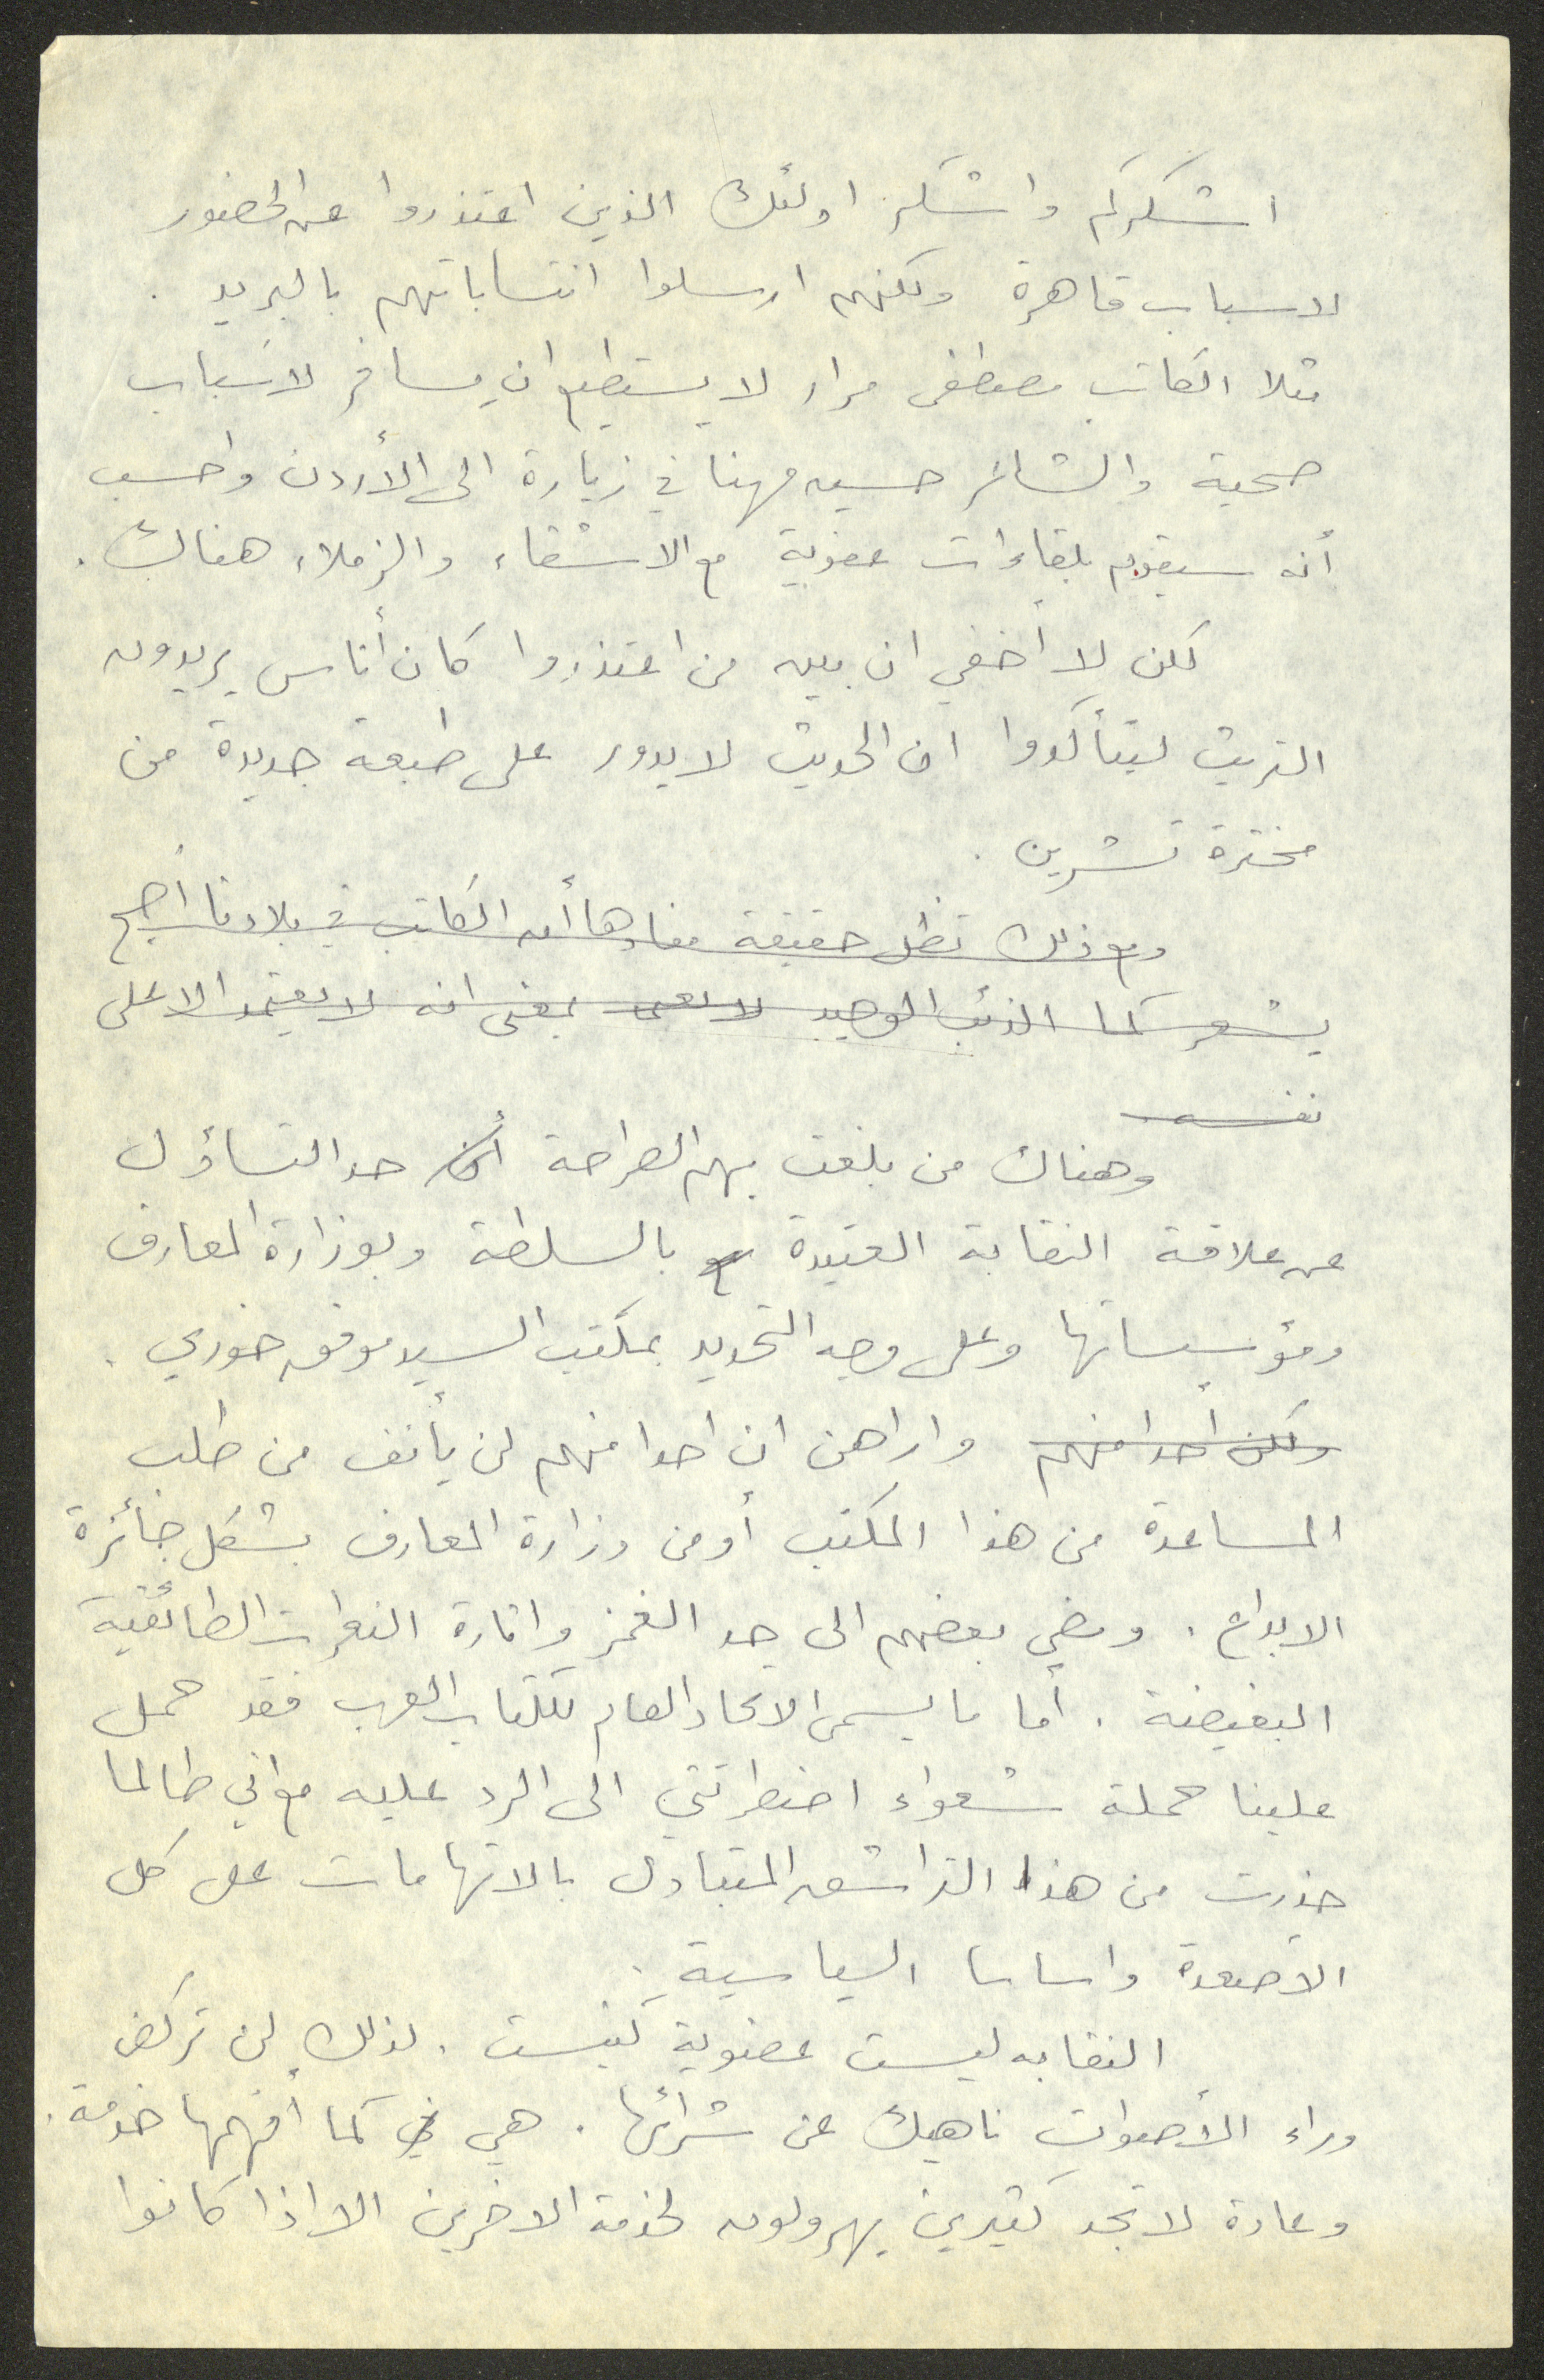 اشكركم واشكر اولئك الذين اعتذروا عن الحضور
لاسباب قاهرة ولكنهم ارسلوا انتساباتهم بالبريد .
مثلا الكاتب مصطفى مرار لا يستطيع ان يسافر لاسباب
صحية والشاعر حسين مهنا في زيارة الى الأردن واحسب
أنه سيقوم بلقاءات عفوية مع الاشقاء والزملاء هناك .
لكن لا أخفي ان بين من اعتذروا كان أناس يريدون
التريث ليتأكدوا ان الحديث لا يدور على طبعة جديدة من
مخترة تشرين .
ومع ذلك تظل حقيقة مفادها أن الكاتب في بلادنا أصبح
يشعر كما الذئب الوحيد لا يعتمد بمعنى انه لا يعتمد الا على
نفسه
وهناك من بلغت بهم الصراحة حد التساؤل
عن علاقة النقابة العتيدة بالسلطة وبوزارة المعارف
ومؤسساتها وعلى وجه التحديد بمكتب السيد موفق خوري .
ولكن أحدا منهم واراهن ان احدا منهم لن يأنف من طلب
المساعدة من هذا المكتب أو من وزارة المعارف بشكل جائزة
الابداع . ومضي بعضهم الى حد الغمز واثارة النعرات الطائفية
البغيضة . أما ما يسمى الاتحاد العام للكتاب العرب فقد حمل
علينا حملة شعواء اضطرتني الى الرد عليه مع اني طالما
حذرت من هذا التراشق المتبادل بالاتهامات على كل
الأصعدة واساسا السياسية .
النقابه ليست عضوية كنيست . لذلك لن تركض
وراء الأصوات ناهيك عن شرائها . هي في كما أفهمها خدمة .
وعادة لا تجد كثيرين يهرولون لخدمة الاخرين الا اذا كانوا